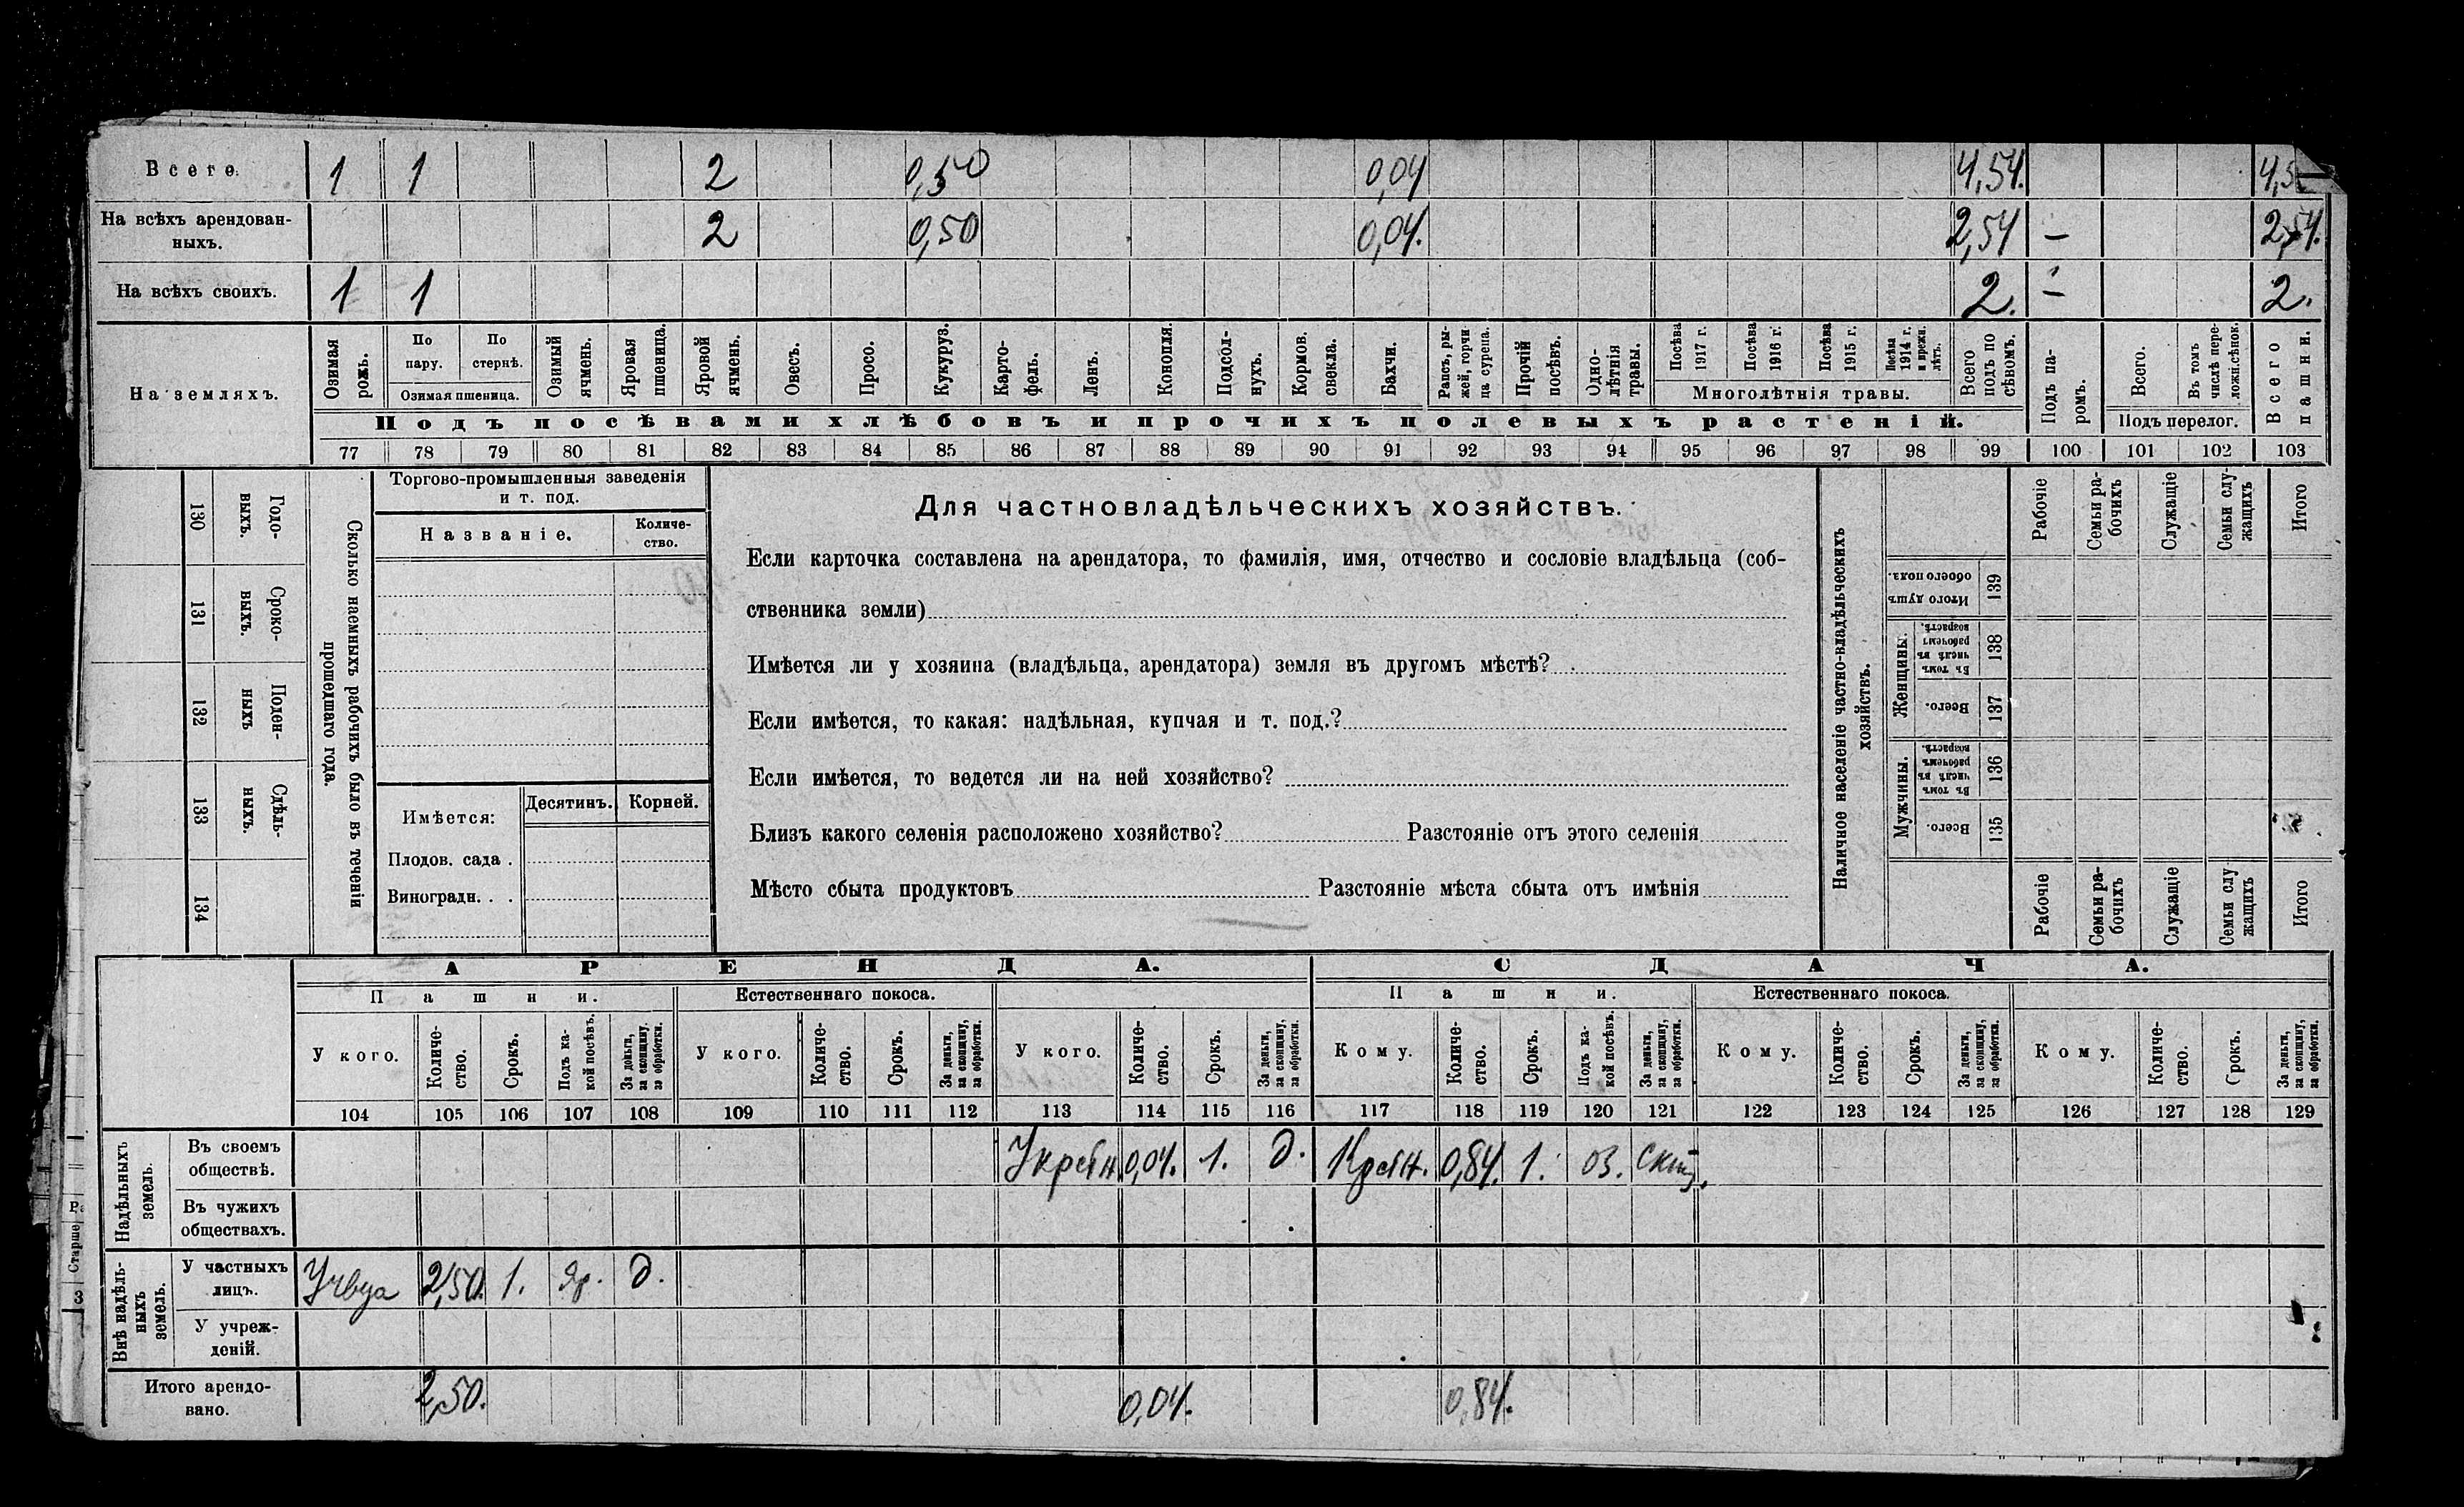 Всего. 1 1 2 0,50 0,04 4,54.
На всѣхъ арендован-
ныхъ. 2 0,50 0,04. 2,54 — 2,54.
На всѣхъ своихъ. 1 1 2. — 2.
На земляхъ.
Озимая рожь.
По пару.
По стернѣ.
Озимая пшеница.
Озимый ячмень.
Яровая пшеница.
Яровой ячмень.
Овесъ.
Просо.
Кукуруз.
Карто-
фель.
Ленъ.
Конопля.
Подсол-
нухъ.
Кормов.
свекла.
Бахчи.
Рапсъ, ры-
жей, горчи-
ца сурепа.
Прочій
посѣвъ.
Одно-
лѣтнія
травы.
Посѣва 1917 г.
Посѣва 1916 г.
Посѣва 1915 г.
Посѣва 1914 г. и прежн. лѣтъ.
Многолѣтнія травы.
Всего подъ по
сѣвомъ.
Подъ па-
ромъ.
Всего.
Въ томъ числѣ пере-
ложн.сѣнок.
Подъ перелог.
Всего пашни.
Подъ посѣвами хлѣбовъ и прочихъ полевыхъ растеній.
77 78 79 80 81 82 83 84 85 86 87 88 89 90 91 92 93 94 95 96 97 98 99 100 101 102 103
130 Годо-
выхъ.
131 Сроко-
выхъ.
132 Поден-
ныхъ
133 Сдѣль-
ныхъ.
134
Сколько наемныхъ рабочихъ было въ теченіи
прошедшаго года.
Торгово-промышленныя заведенія
и т. под.
Названіе.
Количе-
ство.
Имѣется:
Десятинъ. Корней.
Плодов. сада .
Виноградн. . .
Для частновладѣльческихъ хозяйствъ.
Если карточка составлена на арендатора, то фамилія, имя, отчество и сословіе владѣльца (соб-
ственника земли)
Имѣется ли у хозяина (владѣльца, арендатора) земля въ другомъ мѣстѣ?
Если имѣется, то какая: надѣльная, купчая и т. под.?
Если имѣется, то ведется ли на ней хозяйство?
Близъ какого селенія расположено хозяйство? Разстояніе отъ этого селенія
Мѣсто сбыта продуктовъ Разстояніе мѣста сбыта отъ имѣнія
Наличное населеніе частно-владѣльческихъ
хозяйствъ.
Рабочіе
Семьи ра-
бочихъ
Служащіе
Семьи слу-
жащихъ
Итого
Итого душъ
обоего пола. 139
Женщины.
Въ томъ числѣ въ рабочемъ возрастѣ. 138
Всего. 137
Мужчины.
Въ томъ числѣ въ рабочемъ возрастѣ. 136
Всего. 135
Рабочіе
Семьи ра-
бочихъ
Служащіе
Семьи слу
жащихъ
Итого
АРЕНДА. СДАЧА.
Пашни. Естественнаго покоса. Пашни. Естественнаго покоса.
У кого. Количе-
ство. Срокъ. Подъ ка-
кой посѣвъ. За деньги, за скопщину, за обработки.
У кого. Количе-
ство. Срокъ. За деньги, за скопщину, за обработки.
У кого. Количе-
ство. Срокъ. За деньги, за скопщину, за обработки.
Кому. Количе-
ство. Срокъ. Подъ ка-
кой посѣвъ. За деньги, за скопщину, за обработки.
Кому. Количе-
ство. Срокъ. За деньги, за скопщину, за обработки.
Кому. Количе-
ство. Срокъ. За деньги, за скопщину, за обработки.
104 105 106 107 108 109 110 111 112 113 114 115 116 117 118 119 120 121 122 123 124 125 126 127 128 129
Надѣльныхъ
земель.
Въ своемъ
обществѣ. У крстн 0,04. 1. д. Крстн. 0,84. 1. оз.
Въ чужихъ
обществахъ.
Внѣ надѣль-
ныхъ
земель.
У частныхъ
лицъ. 2,50. 1. яр. д.
У учреж-
деній.
Итого арендо-
вано. 2,50. 0,04. 0,84.